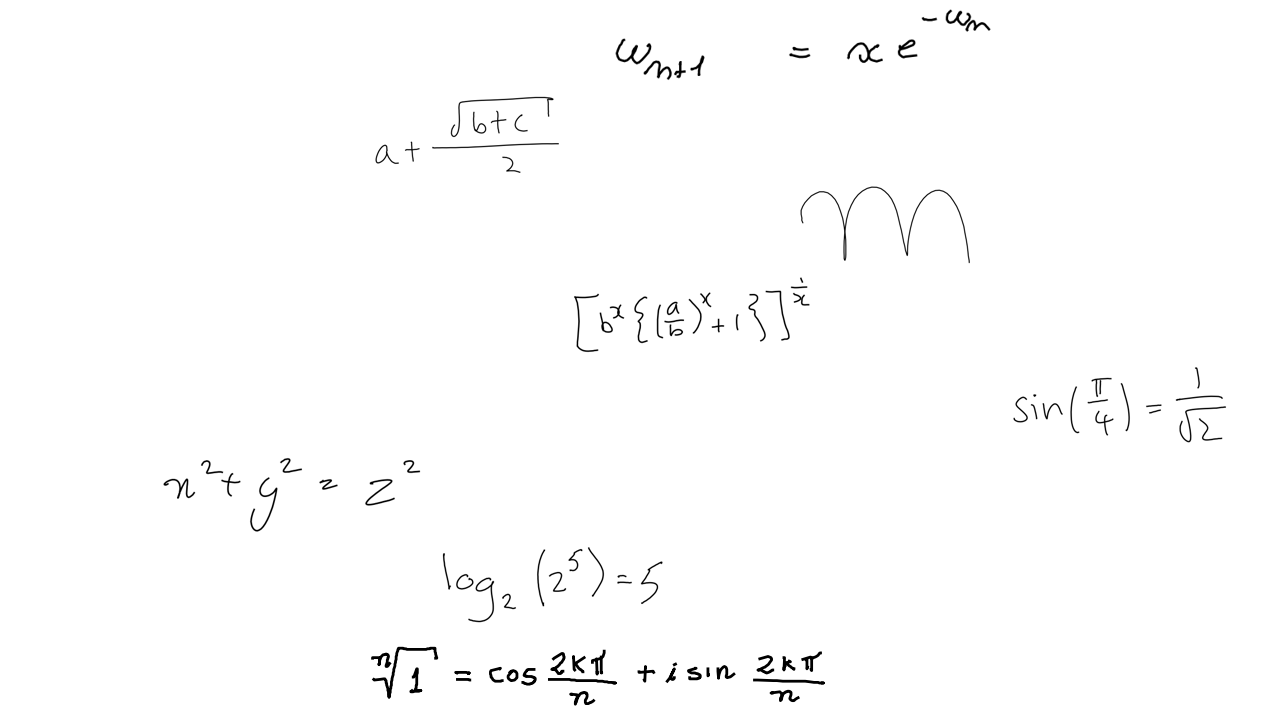 ω_{n+1} = x e^{-ω_n}
a + \frac{\sqrt{b+c}}{2}
m
[b^x {(\frac{a}{b})^x + 1}]^{\frac{1}{x}}
sin(\frac{π}{4}) = \frac{1}{\sqrt{2}}
x^2 + y^2 = z^2
log_2 (2^5) = 5
\sqrt[n]{1} = cos \frac{2kπ}{n} + i sin \frac{2kπ}{n}